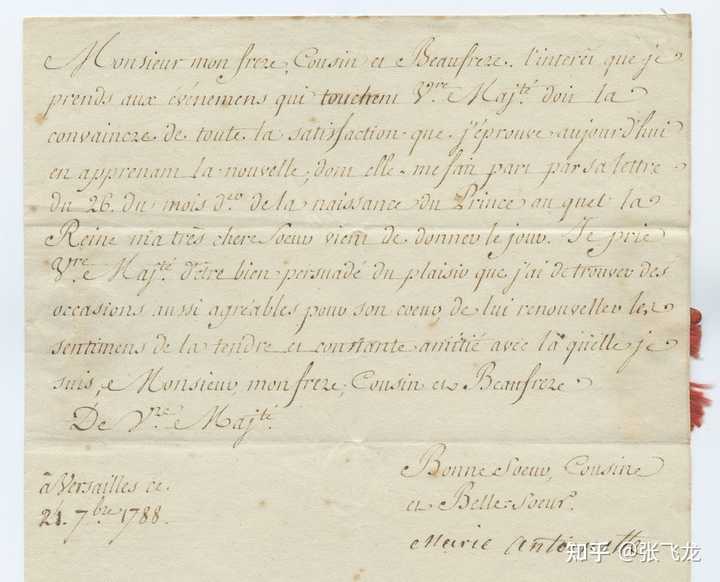 Monsieur mon frere, Cousin et Beaufrere. l'interêt que je
prends aux événemens qui touchent V.re Maj.té doit la
convaincre de toute la satisfaction que j'éprouve aujourd'hui
en apprenant la nouvelle, dont elle me fait part par sa lettre
du 26. du mois d.er de la naissance du Prince au quel la
Reine ma très chere Soeur vient de donner le jour. Je prie
V.re Maj.té d'être bien persuadé du plaisir que j'ai de trouver des
occasions aussi agréables pour son coeur de lui renouveller les
sentimens de la tendre et constante amitié avec la quelle je
suis, Monsieur, mon frere, Cousin et Beaufrere
De V.re Maj.té
Bonne Soeur, Cousine
et Belle-Soeur.
Marie Antoinette
à Versailles ce
21. 7.bre 1788.
知乎 @张飞龙